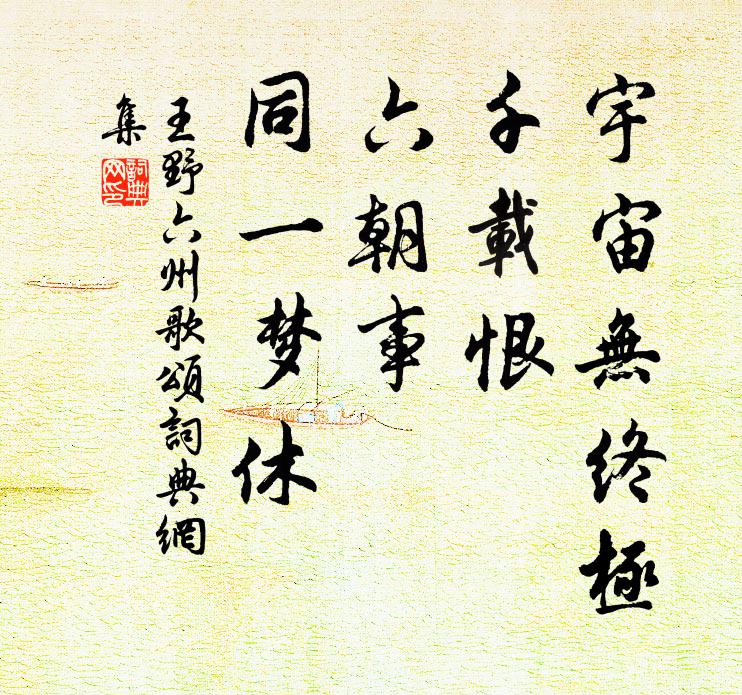 宇宙無終極
千載恨
六朝事
同一梦休
王野六州歌頌詞典網
集
詞典網印